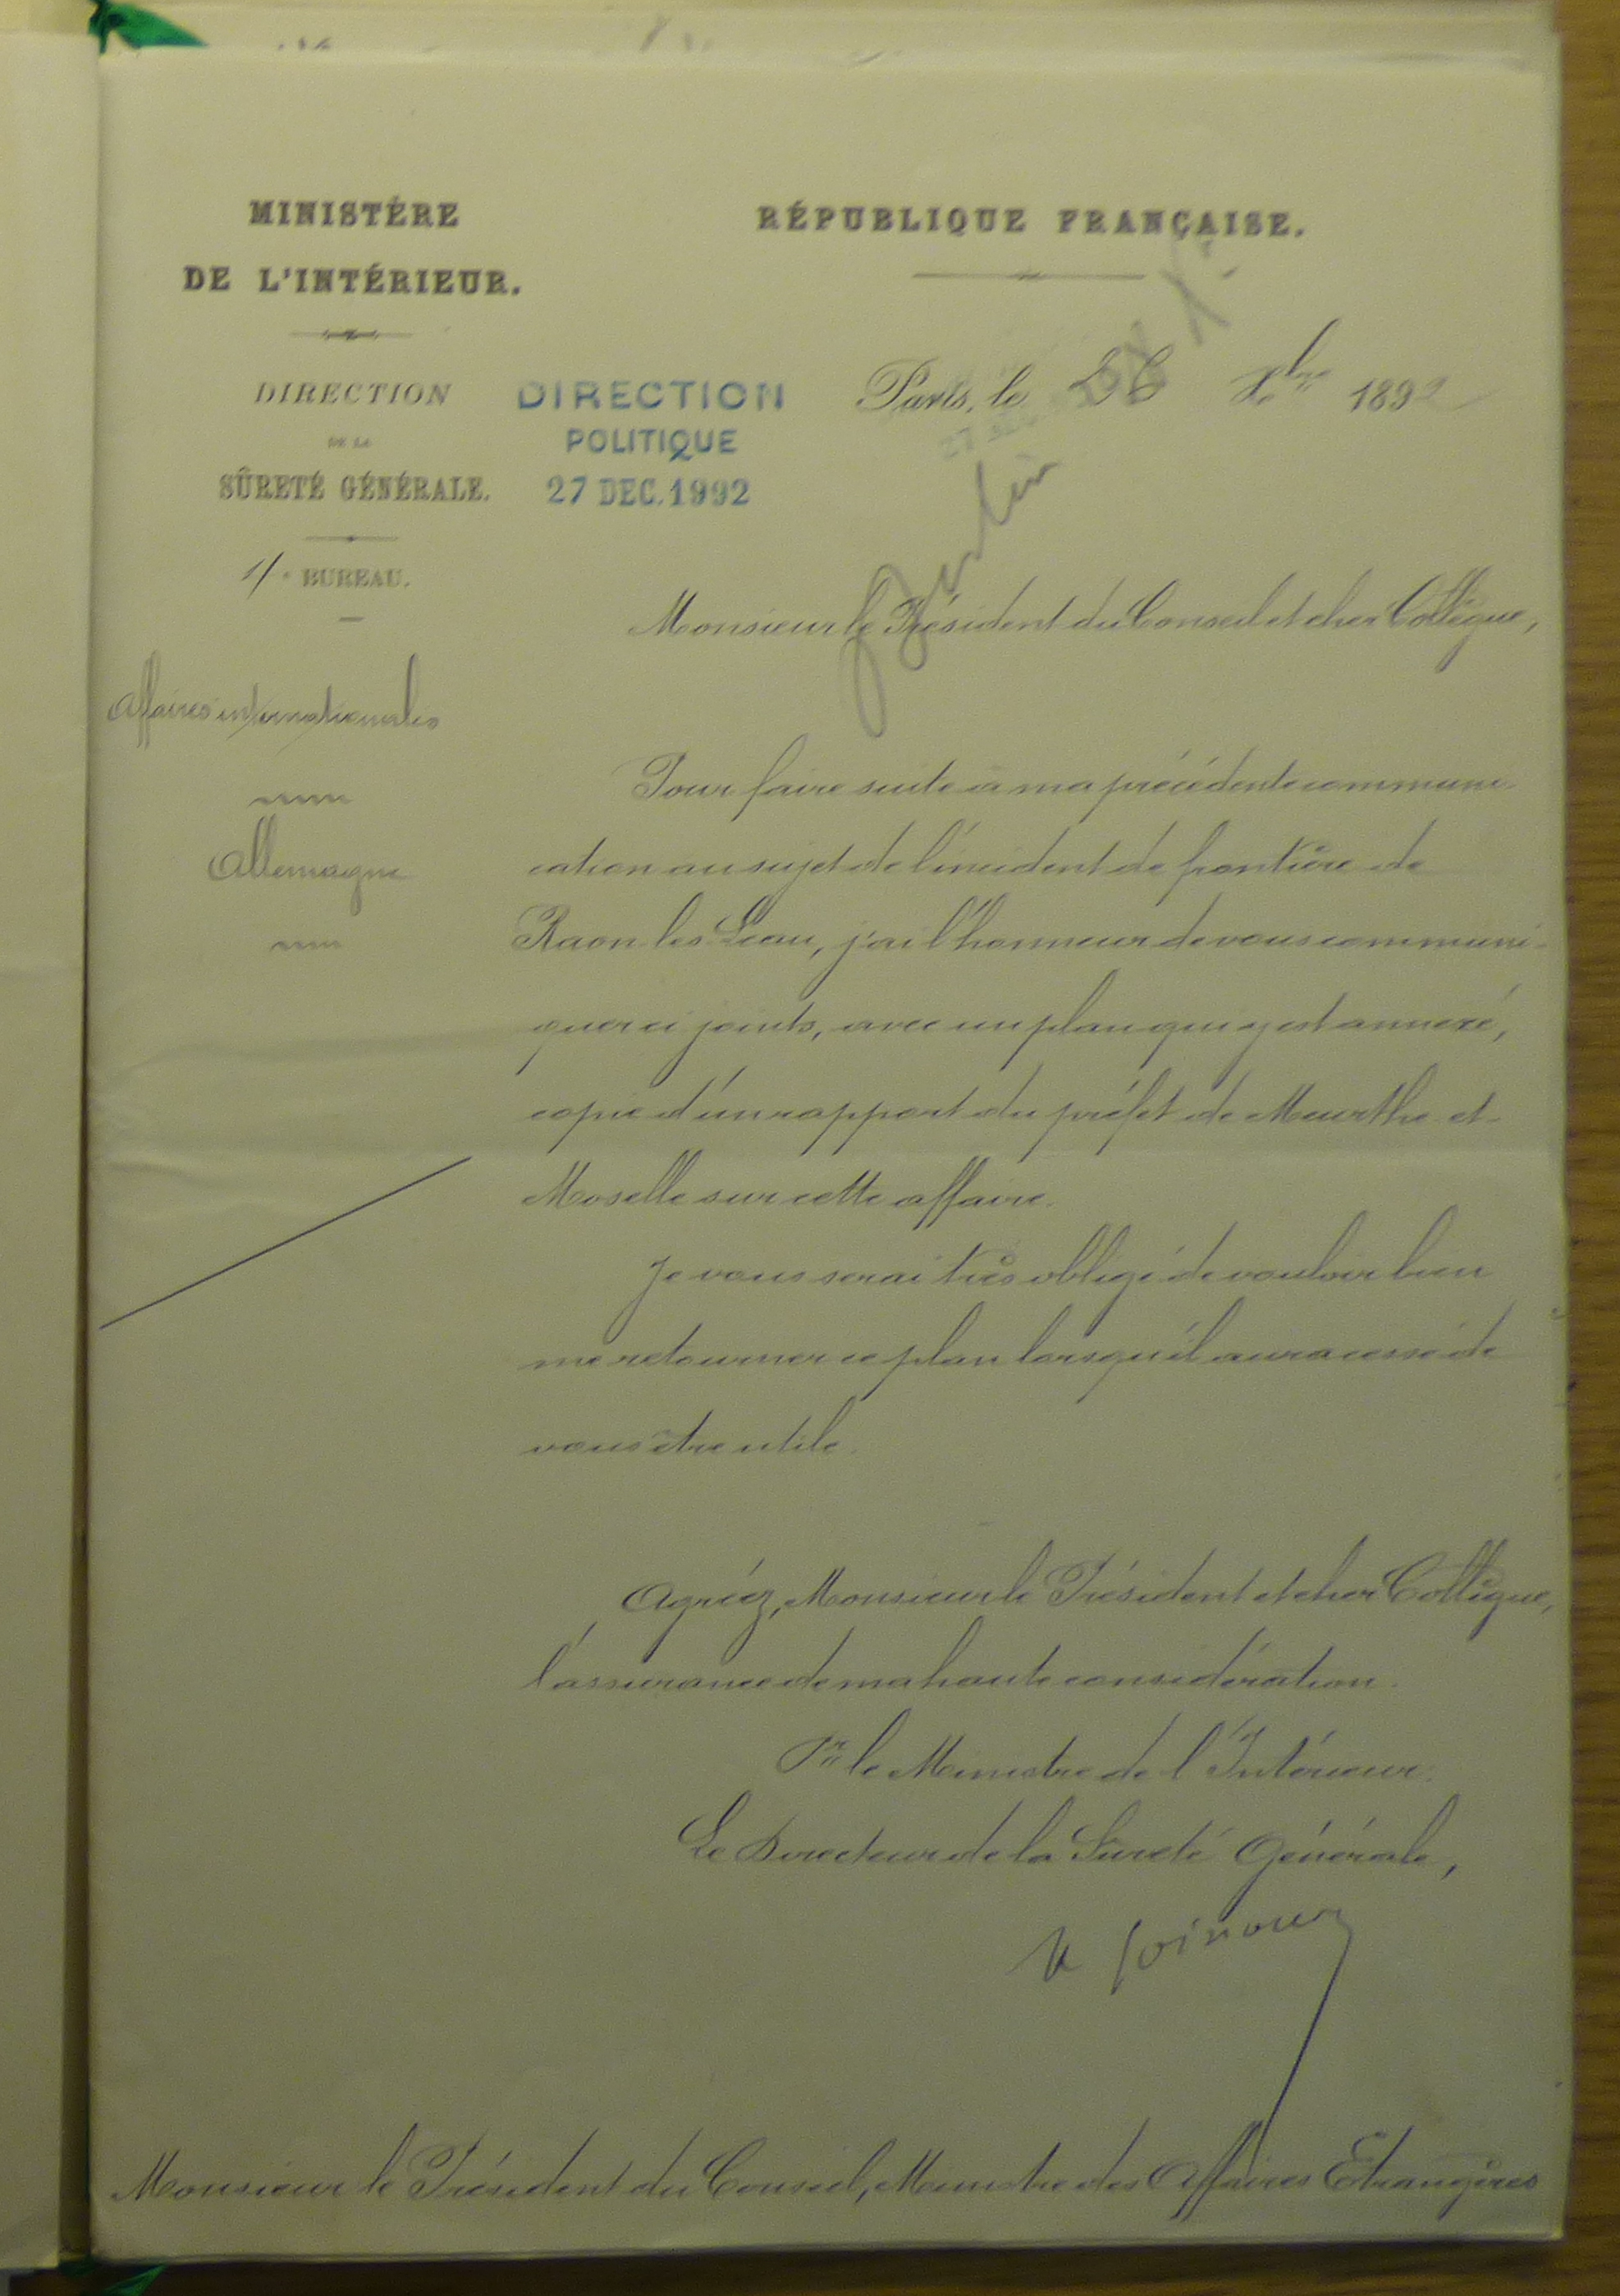 MINISTÈRE
DE L'INTÉRIEUR.
DIRECTION
DE LA
SÛRETÉ GÉNÉRALE.
1er BUREAU.
Affaires internationales
Allemagne
RÉPUBLIQUE FRANÇAISE.
DIRECTION
POLITIQUE
27 DEC. 1992
Paris, le 26 Xbre 1892
Monsieur le Président du Conseil et cher Collègue,
Pour faire suite à ma précédente communi-
cation au sujet de l'incident de frontière de
Raon les Leau, j'ai l'honneur de vous communi-
quer ci joints, avec un plan qui y est annexé,
copie d'un rapport du préfet de Meurthe et
Moselle sur cette affaire.
Je vous serai très obligé de vouloir bien
me retourner ce plan lorsqu'il aura cessé de
vous être utile.
Agréez, Monsieur le Président et cher Collègue,
l'assurance de ma haute considération.
Pr le Ministre de l'Intérieur.
Le Directeur de la Sûreté Générale,
Monsieur le Président du Conseil, Ministre des Affaires Etrangères